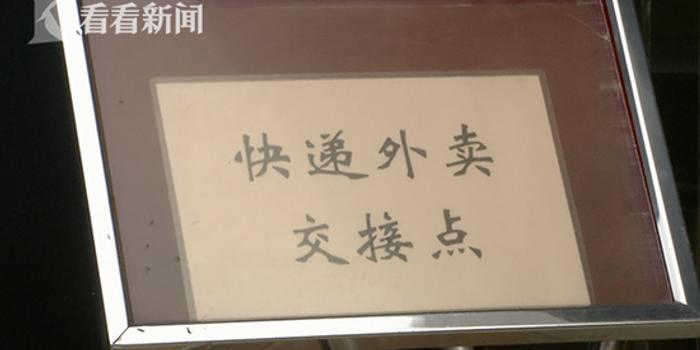 看看新闻
快递外卖
交接点